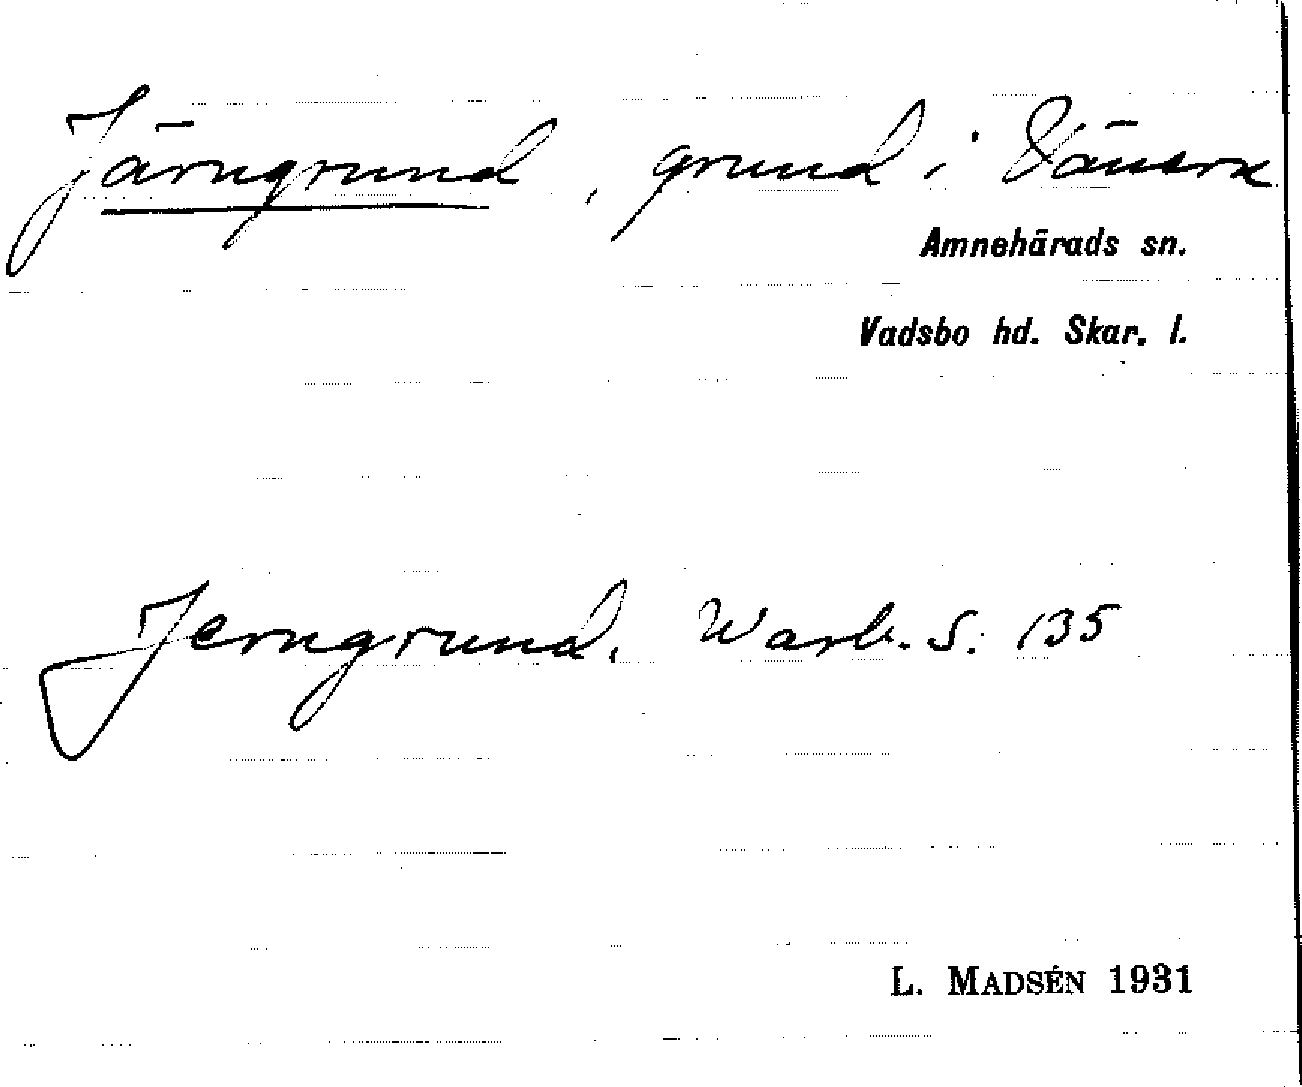 Järngrund, grund i Vänern
Amnehärads sn.
Vadsbo hd. Skar. l.
Jerngrund. Warb. S. 135
L. MADSÉN 1931